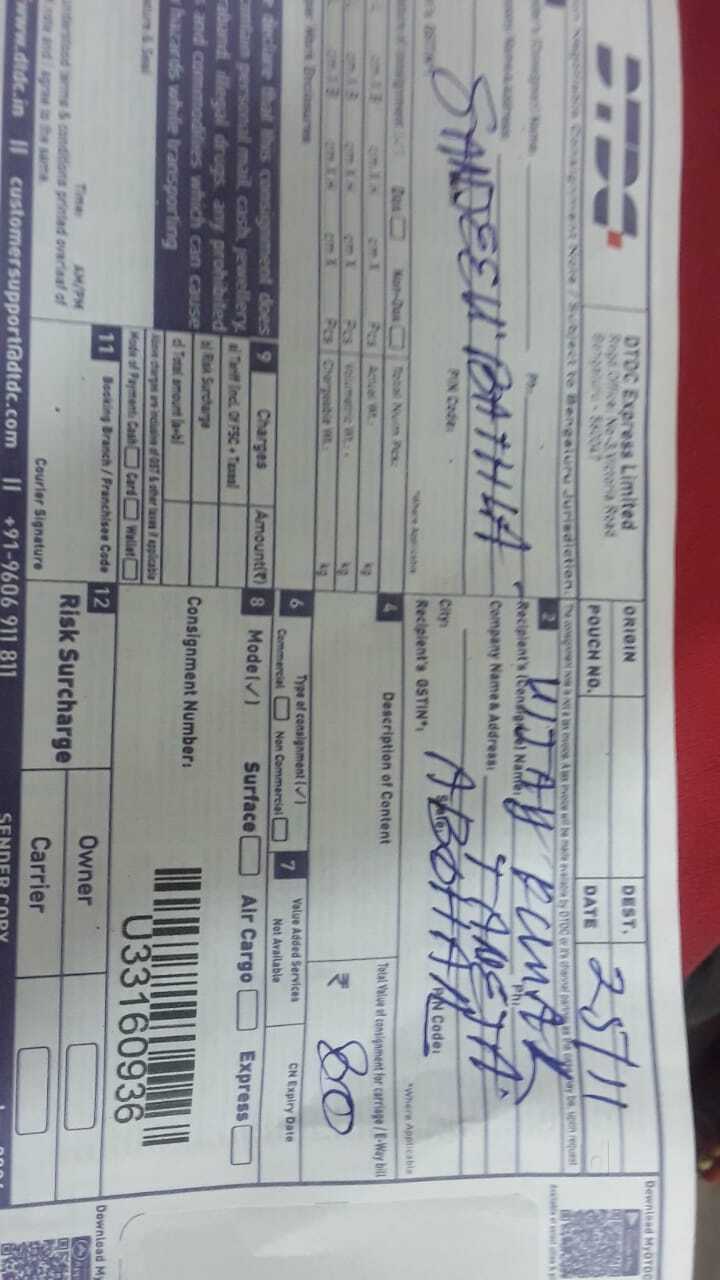 DTDC
DTDC Express Limited
Regd. Office: No-3, Victoria Road
Bengaluru - 560047
ORIGIN
DEST.
POUCH NO.
DATE 25/11
Non Negotiable Consignment Note / Subject to Bengaluru Jurisdiction.
Ph:
PIN Code:
SANDEEP BATHLA
*Where Applicable
2 Recipient's (Consignee) Name: Ph:
VIJAY KUMAR
Company Name & Address:
TANEJA
City: State: PIN Code:
ABOHAR
Recipient's GSTIN*:
*Where Applicable
Dox Non-Dox Total Num Pcs:
cm X B cm X H cm X Pcs Actual Wt.: kg
cm X B cm X H cm X Pcs Volumetric Wt.: kg
cm X B cm X H cm X Pcs Chargeable Wt.: kg
4 Description of Content
Total Value of consignment for carriage / E-Way bill
₹ 80
Paper Work Enclosures
declare that this consignment does
contain personal mail, cash, jewellery,
contraband, illegal drugs, any prohibited
and commodities which can cause
hazards while transporting
9 Charges Amount(₹)
a) Tariff (Incl. Of FSC + Taxes)
b) Risk Surcharge
c) Total amount (a+b)
Above charges are inclusive of GST & other taxes if applicable
Mode of Payment: Cash Card Wallet
6 Type of consignment (✓)
Commercial Non Commercial
7 Value Added Services
Not Available
CN Expiry Date
8 Mode (✓) Surface Air Cargo Express
Consignment Number:
U33160936
Time: AM/PM
understood terms & conditions printed overleaf of
note and I agree to the same.
11 Booking Branch / Franchisee Code
Courier Signature
12 Risk Surcharge
Owner
Carrier
www.dtdc.in || customersupport@dtdc.com || +91-9606 911 811
SENDER COPY
Download MyDTDC
Download My